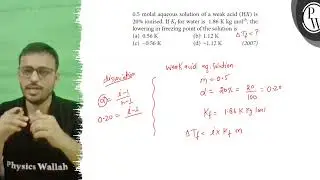 0.5 molal aqueous solution of a weak acid (HX) is
20% ionised. If Kf for water is 1.86 K kg mol⁻¹, the
lowering in freezing point of the solution is
(a) 0.56 K (b) 1.12 K
(c) −0.56 K (d) −1.12 K (2007)
ΔTf = ?
dissociation
α = i−1 / n−1
0.20 = i−1
weak acid aq. solution
m = 0.5
α = 20% = 20/100 = 0.20
Kf = 1.86 K Kg/mol
ΔTf = i × Kf m
Physics Wallah
PW